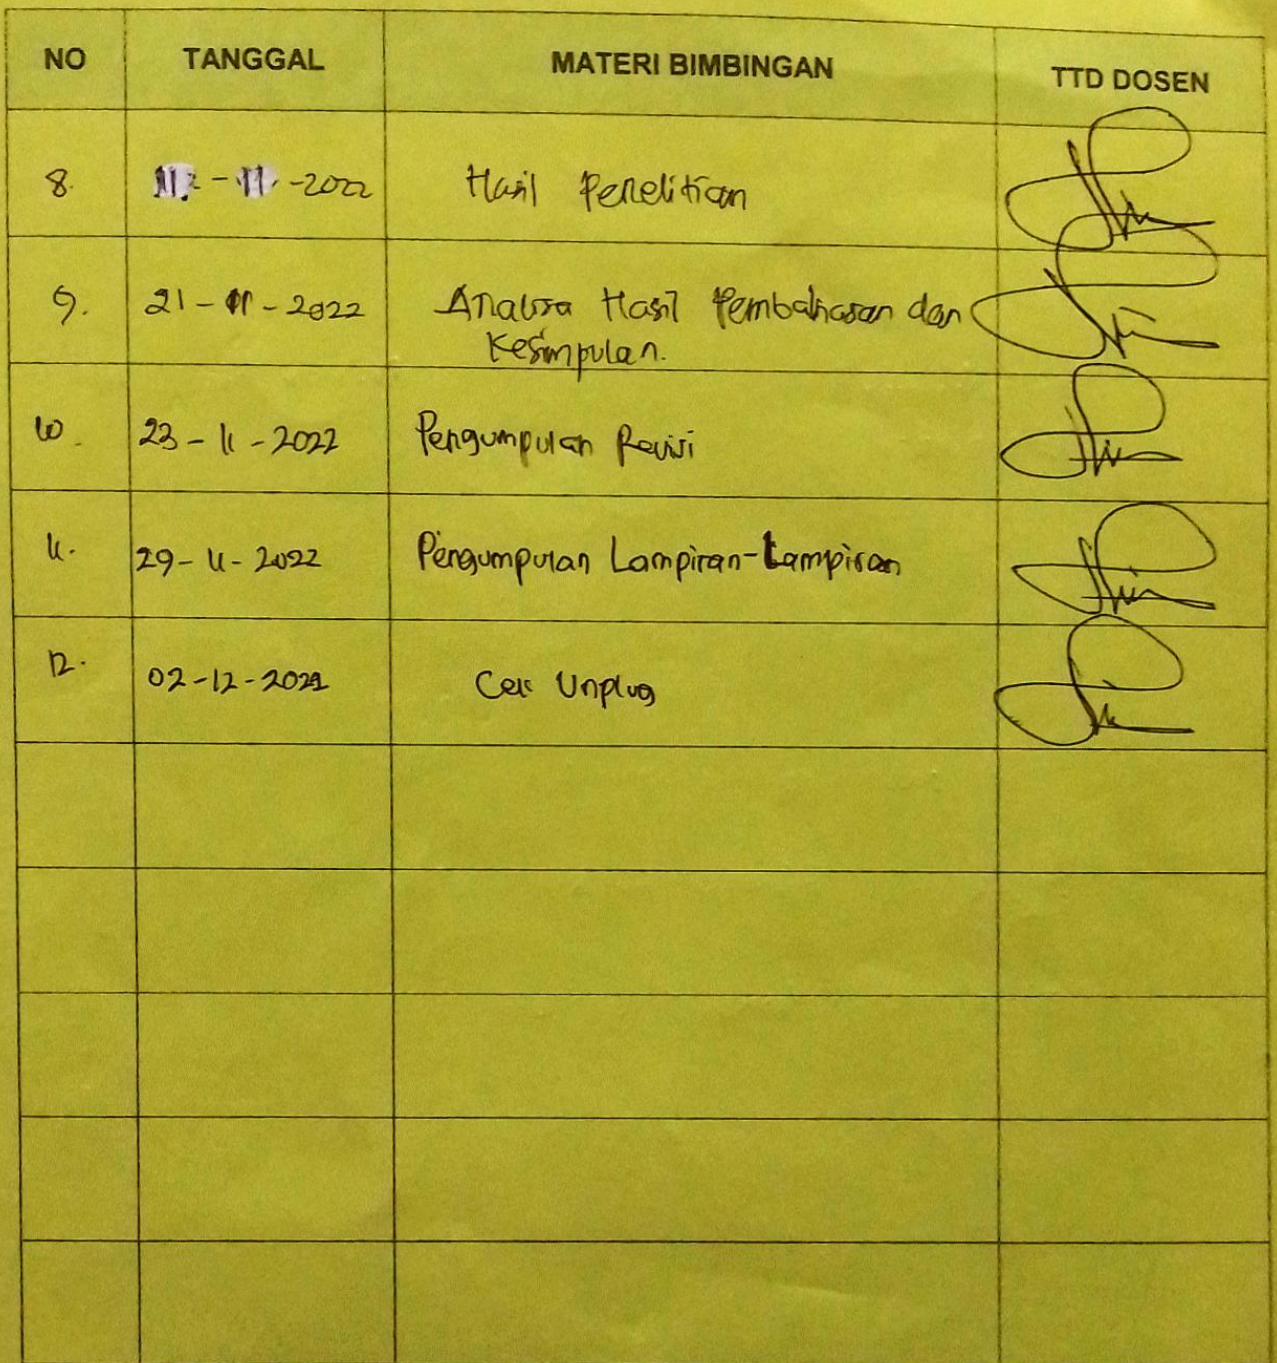 NO TANGGAL MATERI BIMBINGAN TTD DOSEN
8. -11-2022 Hasil Penelitian
9. 21-11-2022 Analisa Hasil Pembahasan dan
Kesimpulan.
10. 23-11-2022 Pengumpulan Revisi
11. 29-11-2022 Pengumpulan Lampiran-Lampiran
12. 02-12-2022 Cek Unplug